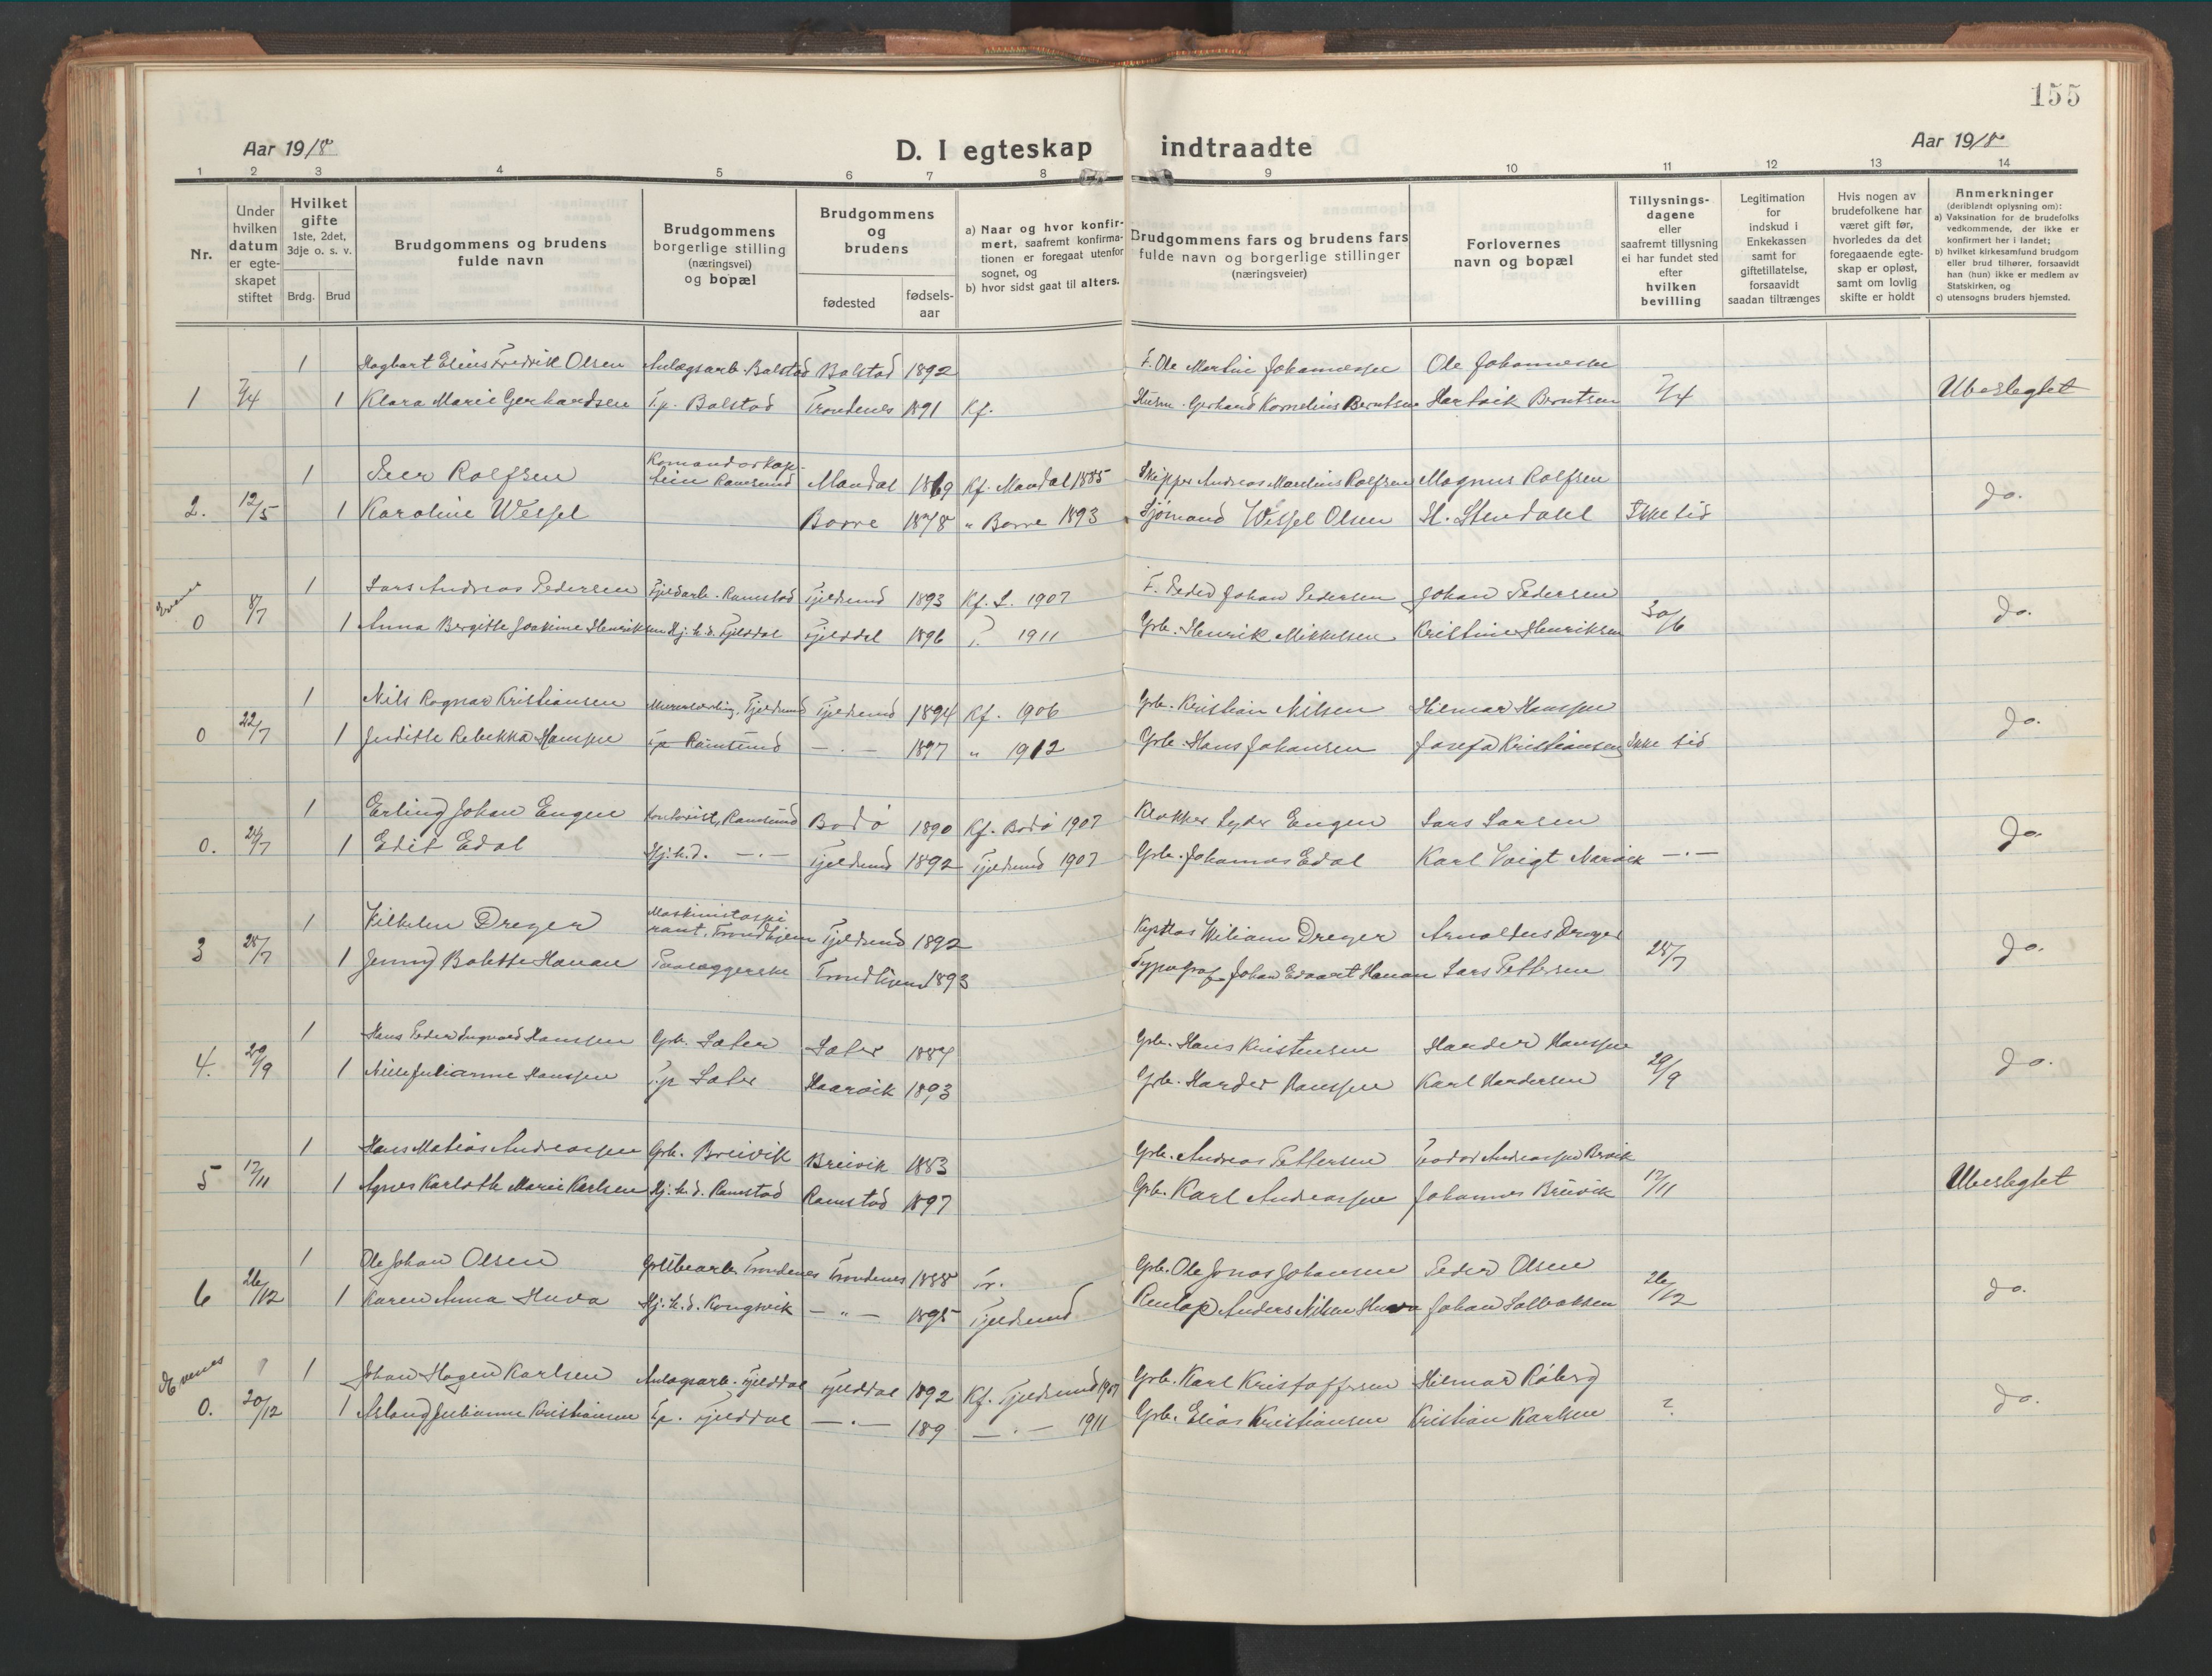 155
Aar 1918
D. I egteskap indtraadte
Aar 1918
1 2 3 4 5 6 7 8 9 10 11 12 13 14
Nr.
Under hvilken datum er egteskapet stiftet
Hvilket gifte 1ste, 2det, 3dje o. s. v.
Brdg. Brud
Brudgommens og brudens fulde navn
Brudgommens borgerlige stilling (næringsvei) og bopæl
Brudgommens og brudens
fødested
fødselsaar
a) Naar og hvor konfirmert, saafremt konfirmationen er foregaat utenfor sognet, og
b) hvor sidst gaat til alters.
Brudgommens fars og brudens fars fulde navn og borgerlige stillinger (næringsveier)
Forlovernes navn og bopæl
Tillysningsdagene eller saafremt tillysning ei har fundet sted efter hvilken bevilling
Legitimation for indskud i Enkekassen samt for giftetillatelse, forsaavidt saadan tiltrænges
Hvis nogen av brudefolkene har været gift før, hvorledes da det foregaaende egteskap er opløst, samt om lovlig skifte er holdt
Anmerkninger (deriblandt oplysning om):
a) Vaksination for de brudefolks vedkommende, der ikke er konfirmert her i landet;
b) hvilket kirkesamfund brudgom eller brud tilhører, forsaavidt han (hun) ikke er medlem av Statskirken, og
c) utensogns bruders hjemsted.
1 Hagbart Elius Fredrik Olsen Anlægsarb. Balstad Balstad 1892 F. Ole Martin Johannessen Ole Johannessen
1 7/4 1 Klara Marie Gerhardsen T.p. Balstad Trondenes 1891 Kf. Husm. Gerhard Kornelius Berntsen Hartvik Berntsen 7/4 Ubeslegtet
1 Peer Rolfsen Ramsund Mandal 1869 Kf. Mandal 1885 Skipper Andreas Rolfsen Magnus Rolfsen
2. 12/5 1 Karoline Wessel Borre 1878 " Borre 1893 Sjømand Wessel Olsen Ikke tid do.
Evenes 1 Lars Andreas Pedersen Fjeldarb. Ramstad Tjeldsund 1893 Kf. L. 1907 F. Peder Johan Pedersen Johan Pedersen
0 8/7 1 Anna Bergitte Joakime Henriksen Hj. h. d. Fjelddal Fjelddal 1896 T. 1911 Grb. Henrik Mikkelsen Kristine Henriksen 30/6 do.
1 Nils Ragnar Kristiansen Tjeldsund Tjeldsund 1894 Kf. 1906 Grb. Kristian Nilsen Hilmar Hanssen
0 22/7 1 Juditte Rebekka Hanssen T.p. Ramsund — . — 1897 " 1912 Grb. Hans Johansen Josefa Kristiansen Ikke tid do.
1 Erling Johan Engen Kontorist, Ramsund Bodø 1890 Kf. Bodø 1907 Klokker Engen Lars Larsen
0. 24/7 1 Edit Edal Hj. h. d. — . — Tjeldsund 1892 Tjeldsund 1907 Grb. Johannes Edal Karl Voigt Narvik — . — do.
1 Vilhelm Dreyer Maskinistaspirant, Trondhjem Tjeldsund 1892 Wiliam Dreyer Arnoldus Dreyer
3 28/7 1 Jenny Bolette Hanan Trondhjem 1893 Typograf Johan Edvart Hanan Lars Pettersen 28/7 do.
1 Hans Peder Ingvald Hanssen Grb. Sater Sater 1887 Grb. Hans Kristensen Harder Hanssen
4. 29/9 1 Julianne Hanssen T.p. Sater Haarvik 1893 Grb. Harder Hanssen Karl Hardersen 29/9 do.
1 Hans Matias Andreassen Grb. Breivik Breivik 1883 Grb. Andreas Pettersen Andreassen
5 17/11 1 Agnes Karloth Marie Karlsen Hj. h. d. Ramstad Ramstad 1897 Grb. Karl Andreassen Johannes Breivik 17/11 Ubeslegtet
1 Ole Johan Olsen Trondenes Trondenes 1888 Tr. Grb. Ole Jonas Johansen Peder Olsen
6 26/12 1 Karen Anna Huva Hj. h. d. Kongsvik — " — 1895 Tjeldsund Anders Nilsen Huva Johan 26/12 do.
Evenes 1 Johan Hagen Karlsen Anlægsarb. Fjelddal Fjelddal 1892 Kf. Tjeldsund 1907 Grb. Karl Kristoffersen Hilmar Råberg
0. 20/12 1 Aslaug Julianne Kristiansen T.p. Fjelddal — . — 189 — . — 1911 Grb. Elias Kristiansen Kristian Karlsen ? do.